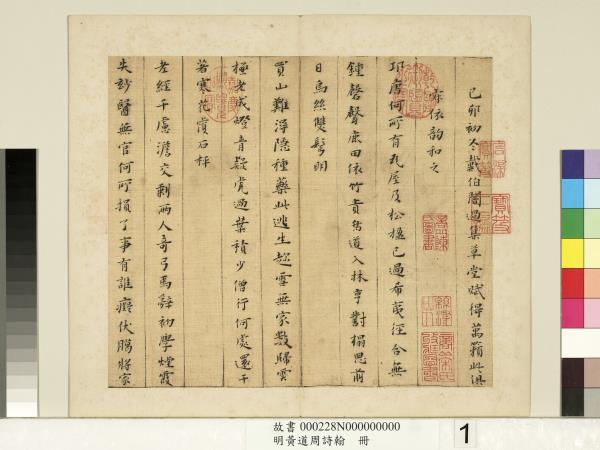 己卯初冬戴伯闇過集草堂賦得萬籟此俱
亦依韵和之
何所有瓦屋及松楹已過希夷徑合無
鍾磬聲鹿田依竹貴道入林亨對榻思前
日烏絲雙鬢明
買山難浮隱種藥此逃生雪無家數歸雲
極老成燈青疑虎過葉積少僧行何處還
若寒花賞石枰
老經千慮澹交剩兩人弓馬辭初學煙霞
失診醫無官何所損了事有誰癡伏臘將家
故書 000228N000000000
明黃道周詩翰 冊
1